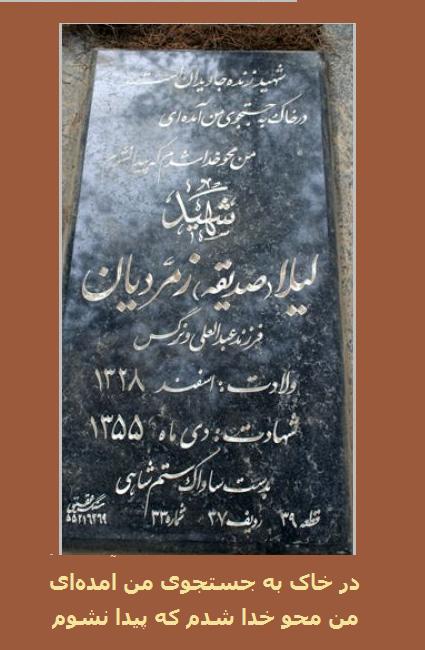 شهید زنده جاویدان است
در خاک به جستجوی من آمده ای
من محو خدا شدم که پیدا نشوم
شهید
لیلا (صدیقه) زمردیان
فرزند عبدالعلی و نرگس
ولادت : اسفند ۱۳۲۸
شهادت : دی ماه ۱۳۵۵
بدست ساواک ستم شاهی
قطعه ۳۹ ردیف ۳۷ شماره ۳۳
۵۵۲۱۶۲۶۹
در خاک به جستجوی من امده‌ای
من محو خدا شدم که پیدا نشوم